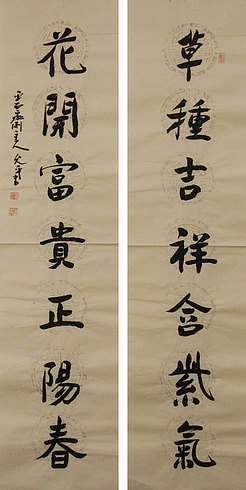 草種吉祥含紫氣
花開富貴正陽春